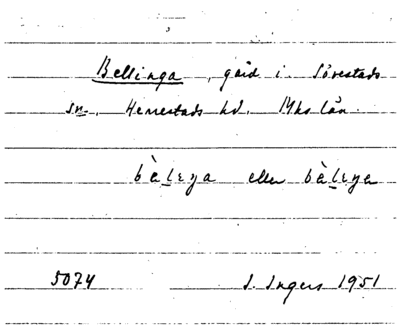 Bellinga, gård i Sövestads
sn. Herrestads hd. Mhs län.
bàlɛŋa eller bàlɛŋa
5074 I. Ingers 1951